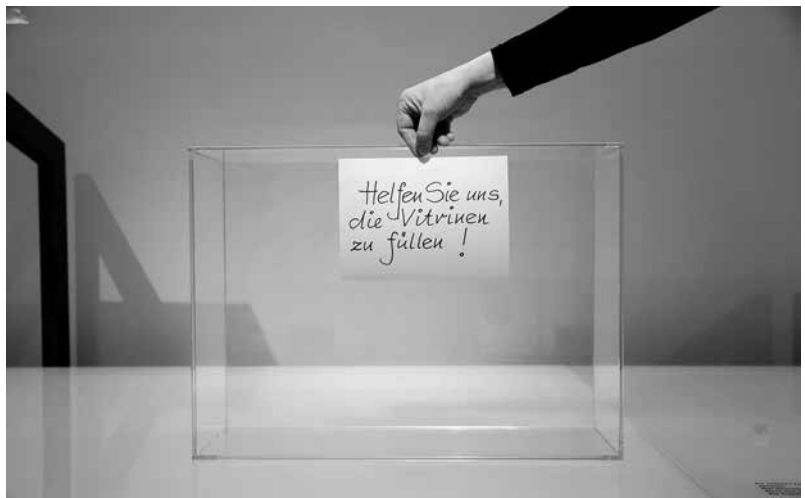 Helfen Sie uns,
die Vitrinen
zu füllen !